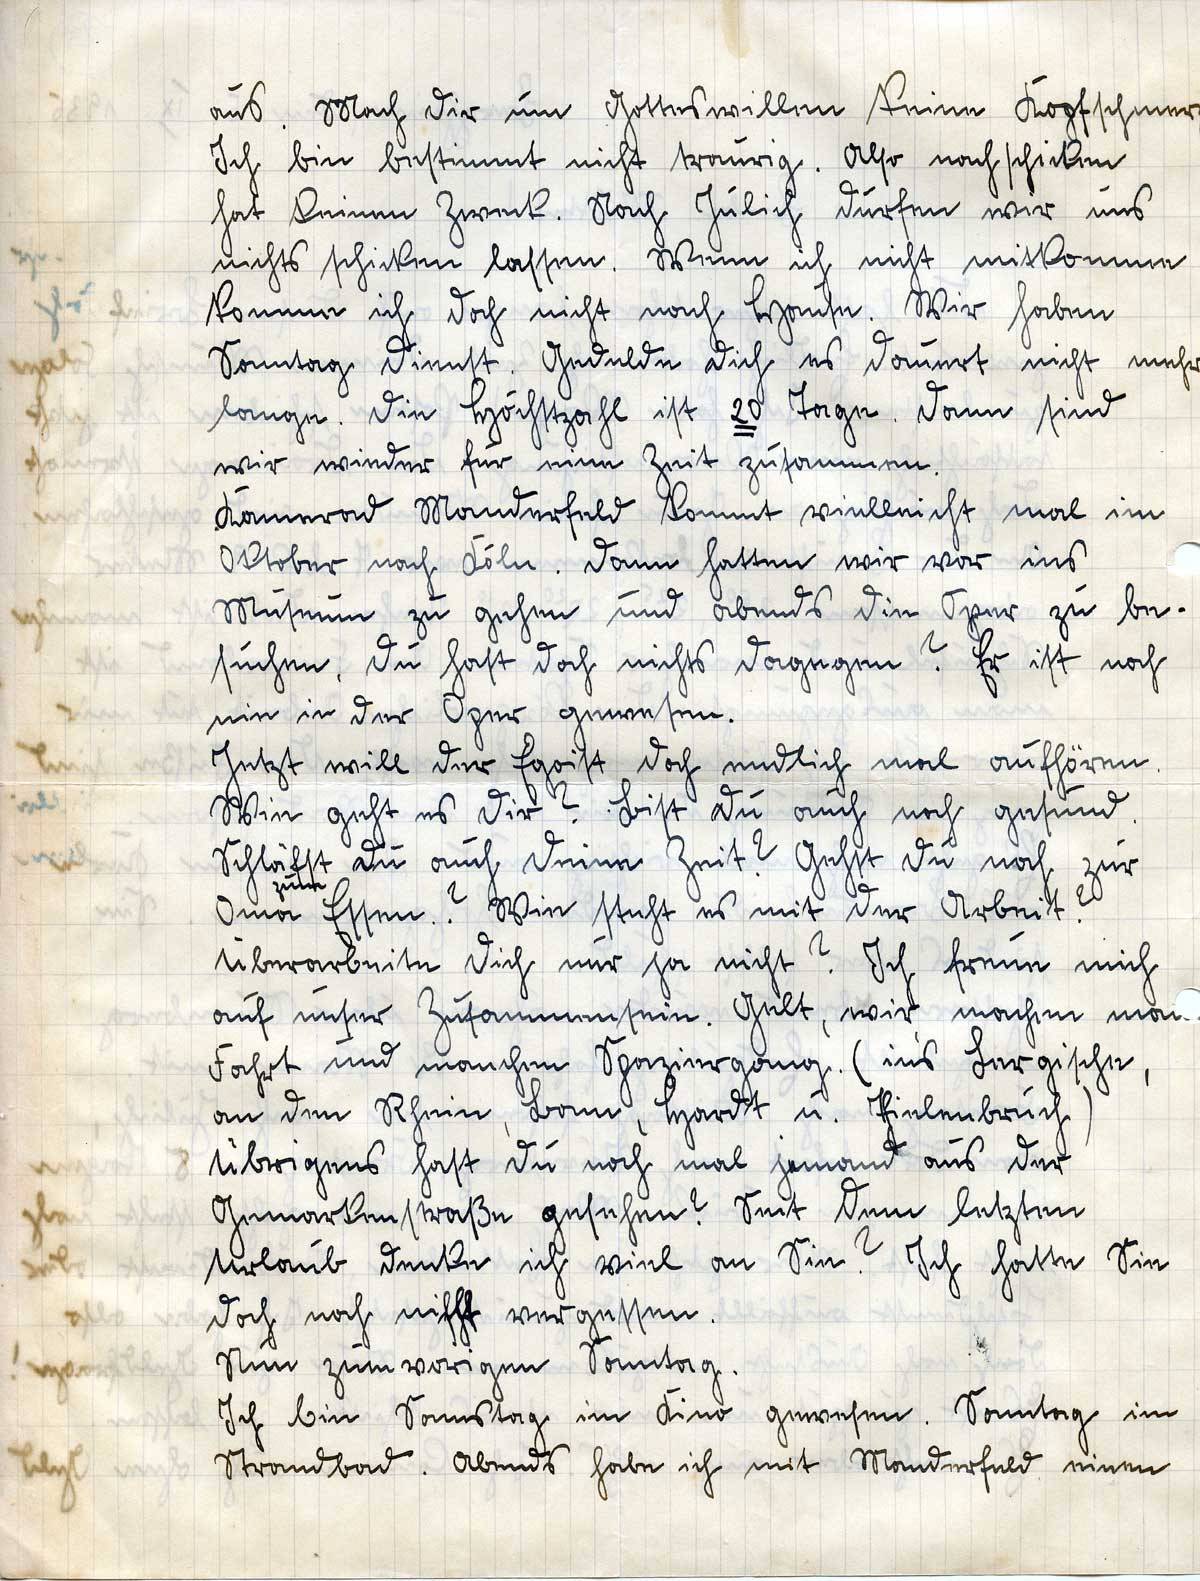 aus. Mach Dir um Gotteswillen keine Kopfschmer
Ich bin bestimmt nicht traurig. Also nachschicken
hat keinen Zweck. Nach Jülich dürfen wir uns
nichts schicken lassen. Wenn ich nicht mitkomme
komme ich doch nicht nach Hause. Wir haben
Sonntag Dienst. Gedulde Dich es dauert nicht mehr
lange. Die Höchstzahl ist 20 Tage. Dann sind
wir wieder für eine Zeit zusammen.
Kamerad Manderfeld kommt vielleicht mal im
Oktober nach Köln. Dann hatten wir vor ins
Museum zu gehen und abends die Oper zu be-
suchen. Du hast doch nichts dagegen? Er ist noch
nie in der Oper gewesen.
Jetzt will der Egoist doch endlich mal aufhören.
Wie geht es Dir? Bist Du auch noch gesund.
Schläfst Du auch Deine Zeit? Gehst Du noch zur
Oma zum Essen.? Wie steht es mit der Arbeit?
Überarbeite Dich nur ja nicht? Ich freue mich
auf unser Zusammensein. Gelt, wir machen man
Fahrt und manchen Spaziergang. (ins Bergische,
an den Rhein, Bonn, Hardt u. Thielenbruch)
Übrigens hast Du noch mal jemand aus der
Gemarkenstraße gesehen? Seit dem letzten
Urlaub denke ich viel an Sie? Ich hatte Sie
doch noch nicht vergessen.
Nun zum vorigen Sonntag.
Ich bin Samstag im Kino gewesen. Sonntag im
Strandbad. Abends habe ich mit Manderfeld einen